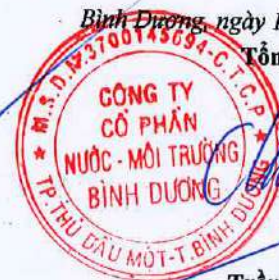 Bình Dương, ngày
Tổn
M.S.D.N:3700145694-C.T.C.P
CÔNG TY
CỔ PHẦN
NƯỚC - MÔI TRƯỜNG
BÌNH DƯƠNG
TP.THỦ DẦU MỘT-T.BÌNH DƯƠNG